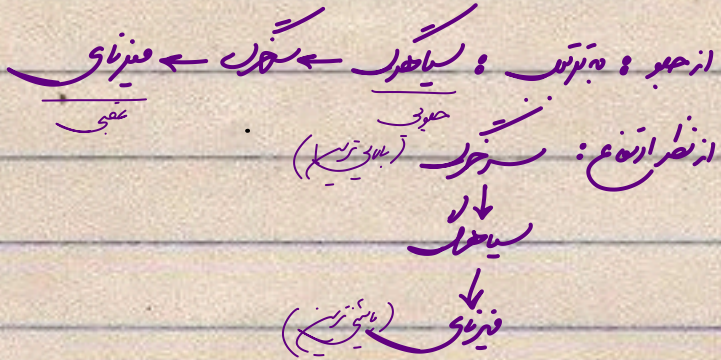 از جلو : به ترتیب : سیاهرگ ← سرخرگ ← میزنای
جلویی عقبی
از نظر ارتفاع : سرخرگ (بالایی ترین)
↓
سیاهرگ
↓
میزنای (پائینی ترین)